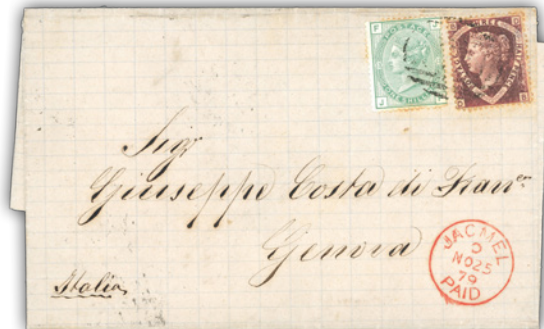 Sigr
Giuseppe Costa di Franco
Genova
Italia
JACMEL
NO 25
79
PAID